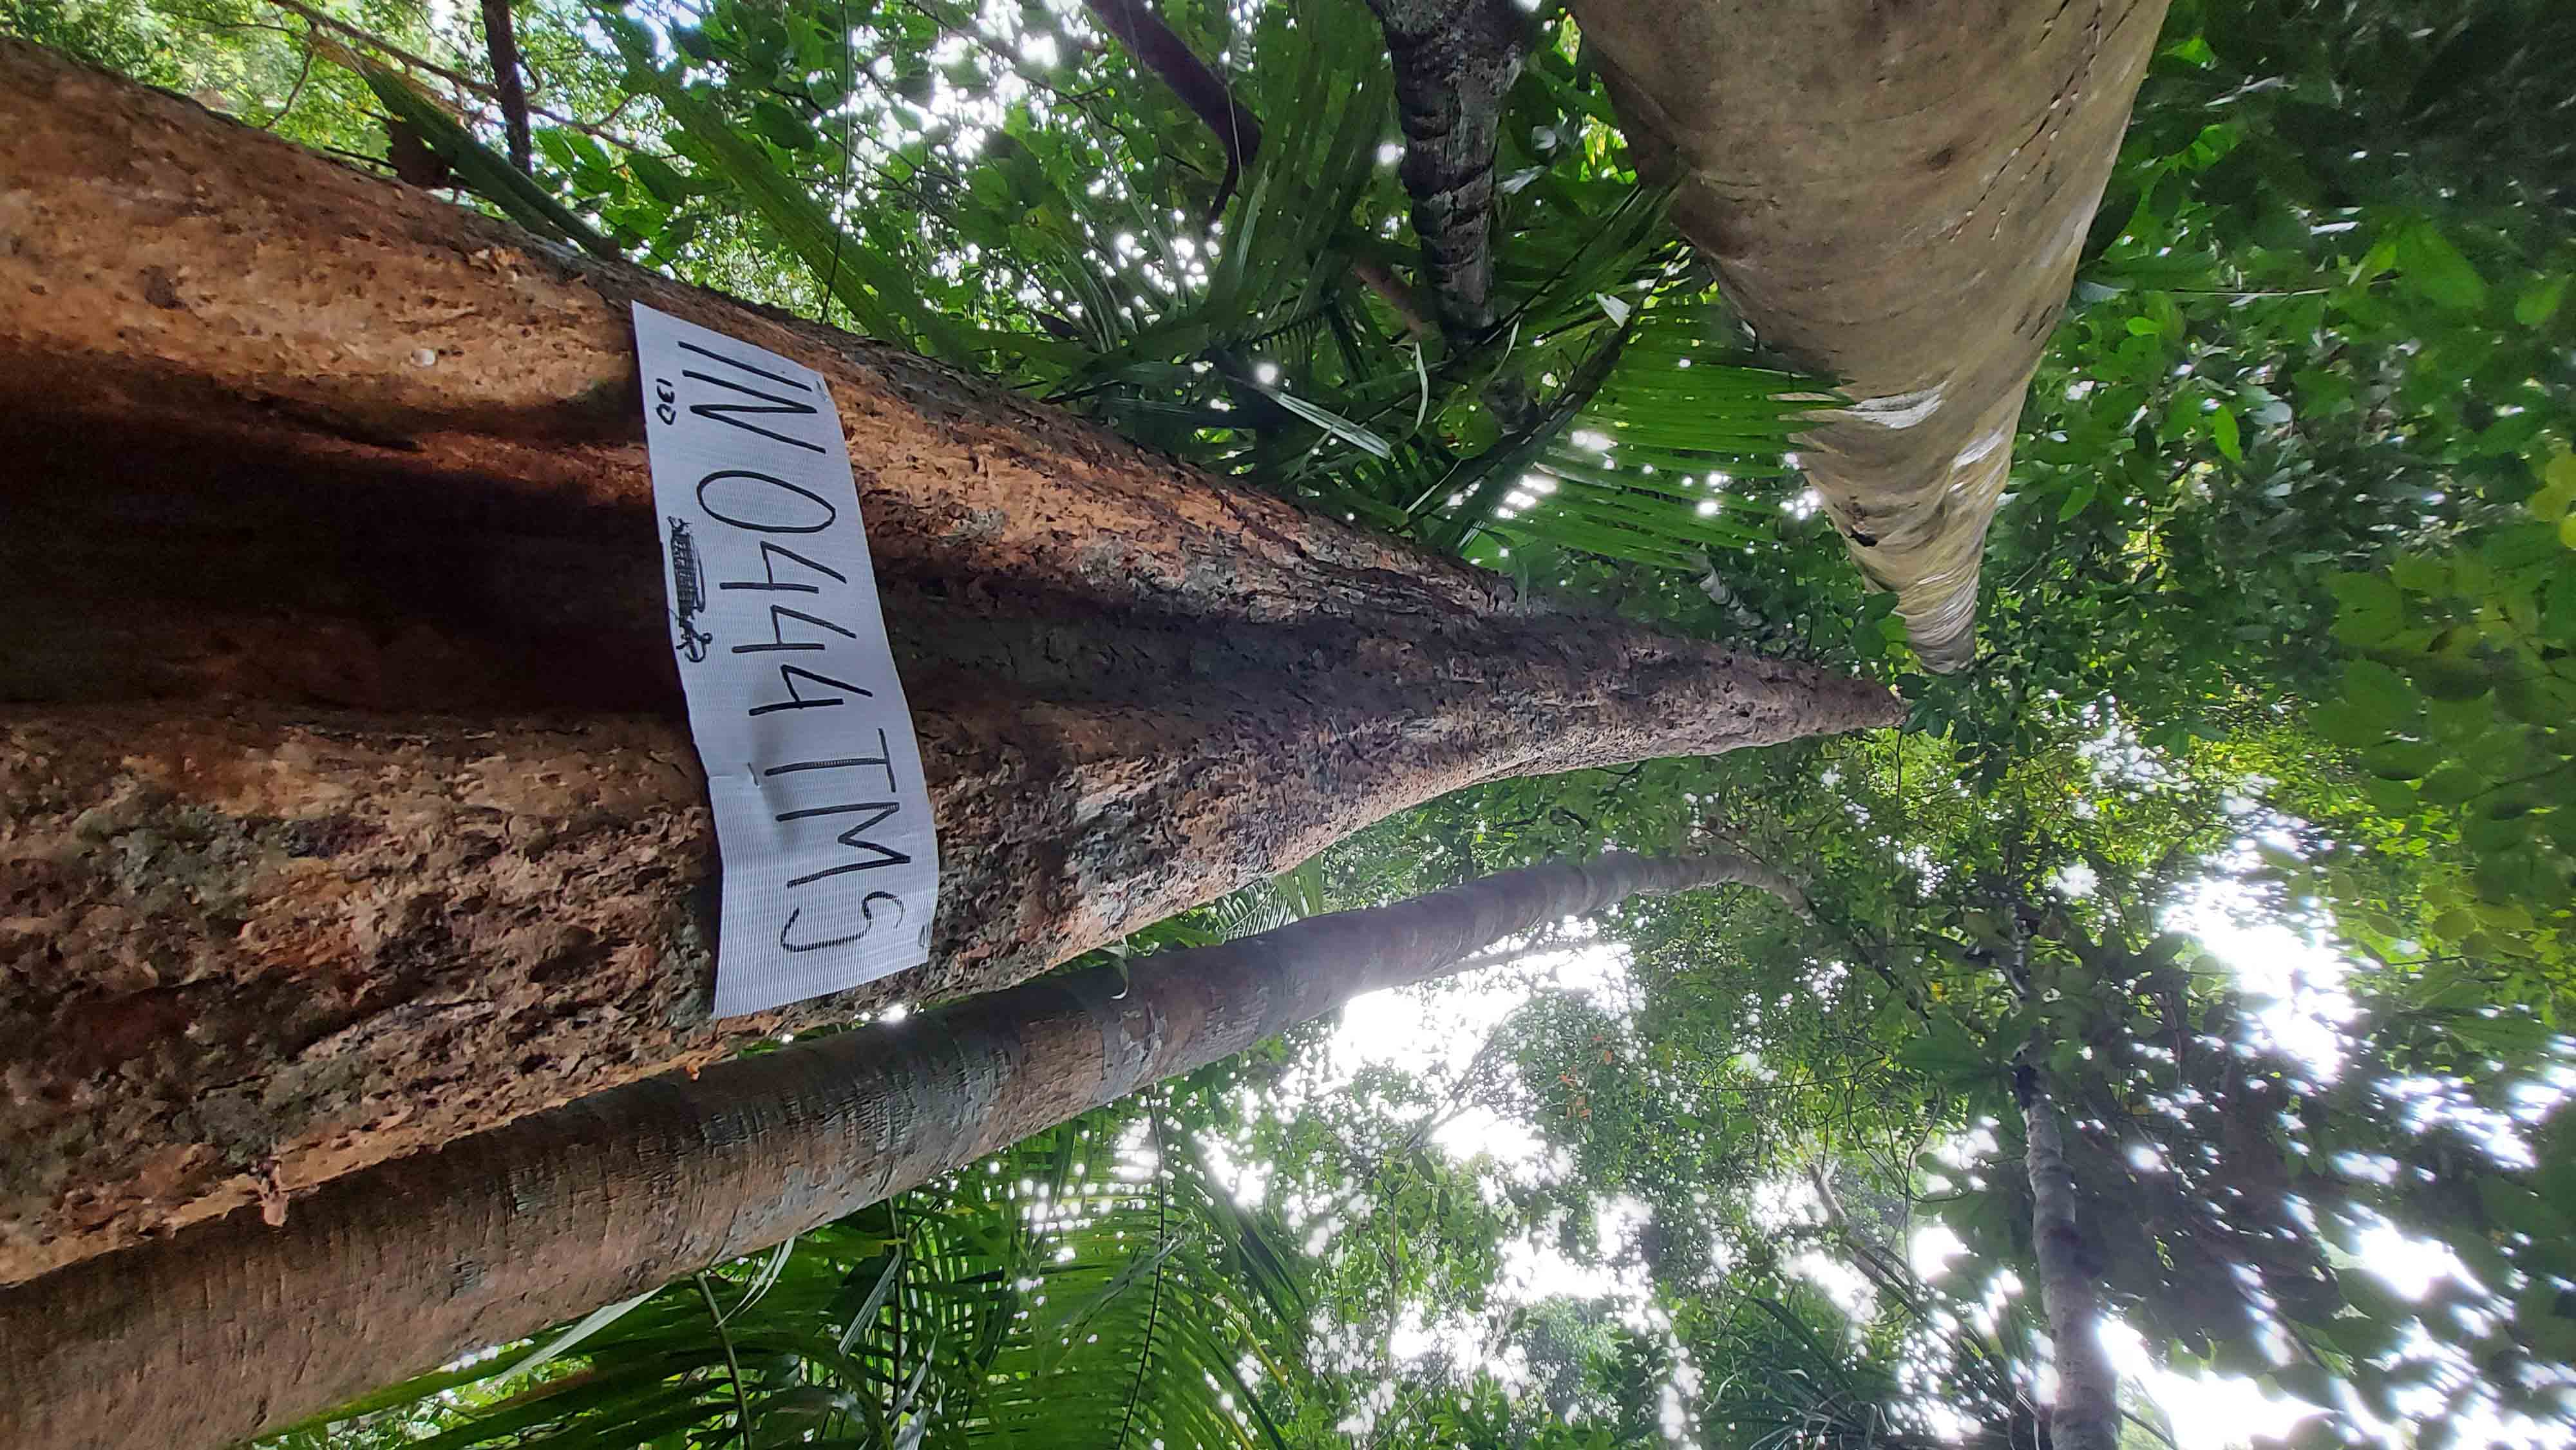 IN 0444 TMG
130